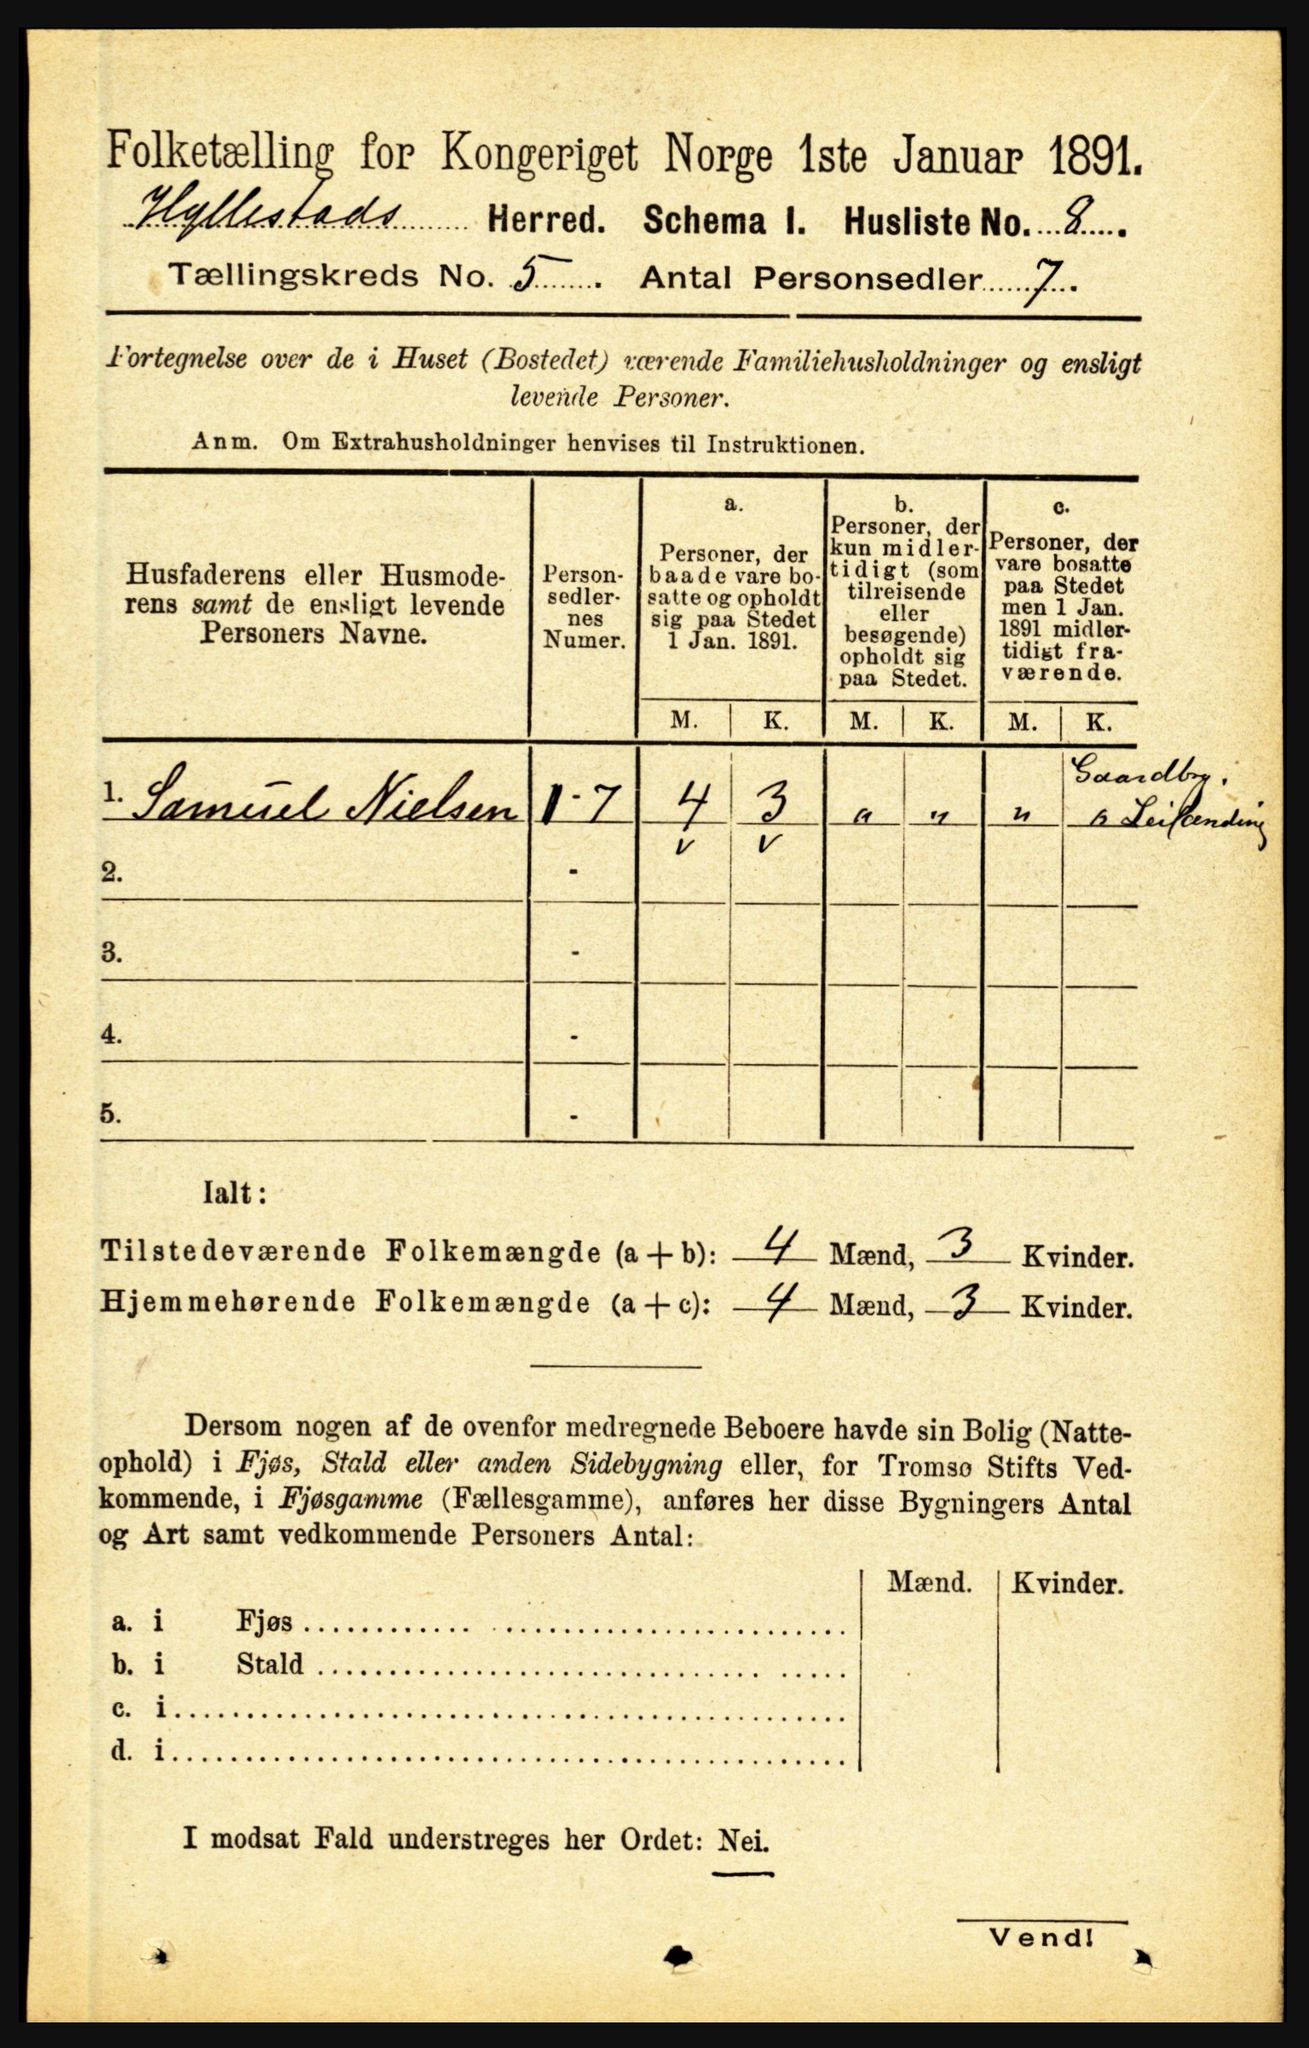 Folketælling for Kongeriget Norge 1ste Januar 1891.
Hyllestads Herred. Schema I. Husliste No. 8.
Tællingskreds No. 5. Antal Personsedler 7.
Fortegnelse over de i Huset (Bostedet) værende Familiehusholdninger og ensligt
levende Personer.
Anm. Om Extrahusholdninger henvises til Instruktionen.
Husfaderens eller Husmode-
rens samt de ensligt levende
Personers Navne.
Person-
sedler-
nes
Numer.
a.
Personer, der
baade vare bo-
satte og opholdt
sig paa Stedet
1 Jan. 1891.
b.
Personer, der
kun midler-
tidigt (som
tilreisende
eller
besøgende)
opholdt sig
paa Stedet.
c.
Personer, der
vare bosatte
paa Stedet
men 1 Jan.
1891 midler-
tidigt fra-
værende.
M. K. M. K. M. K.
Gaardbr.
1. Samuel Nielsen 1-7 4 3 " " "
v v
2. -
3. -
4. -
5. -
Ialt:
Tilstedeværende Folkemængde (a + b): 4 Mænd, 3 Kvinder.
Hjemmehørende Folkemængde (a + c): 4 Mænd, 3 Kvinder.
Dersom nogen af de ovenfor medregnede Beboere havde sin Bolig (Natte-
ophold) i Fjøs, Stald eller anden Sidebygning eller, for Tromsø Stifts Ved-
kommende, i Fjøsgamme (Fællesgamme), anføres her disse Bygningers Antal
og Art samt vedkommende Personers Antal:
Mænd. Kvinder.
a. i Fjøs
b. i Stald
c. i
d. i
I modsat Fald understreges her Ordet: Nei.
Vend!